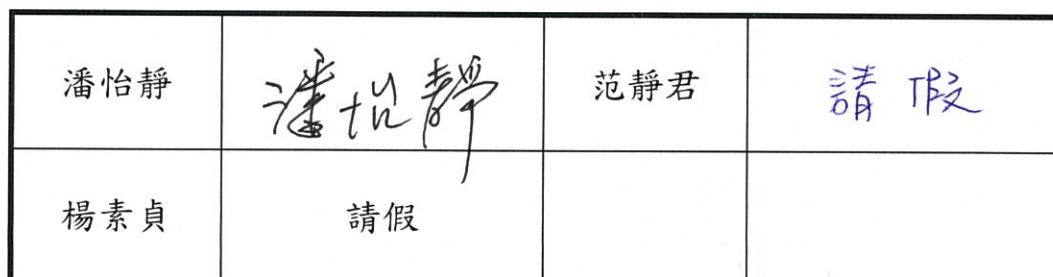 潘怡靜 潘怡靜 范靜君 請假
楊素貞 請假